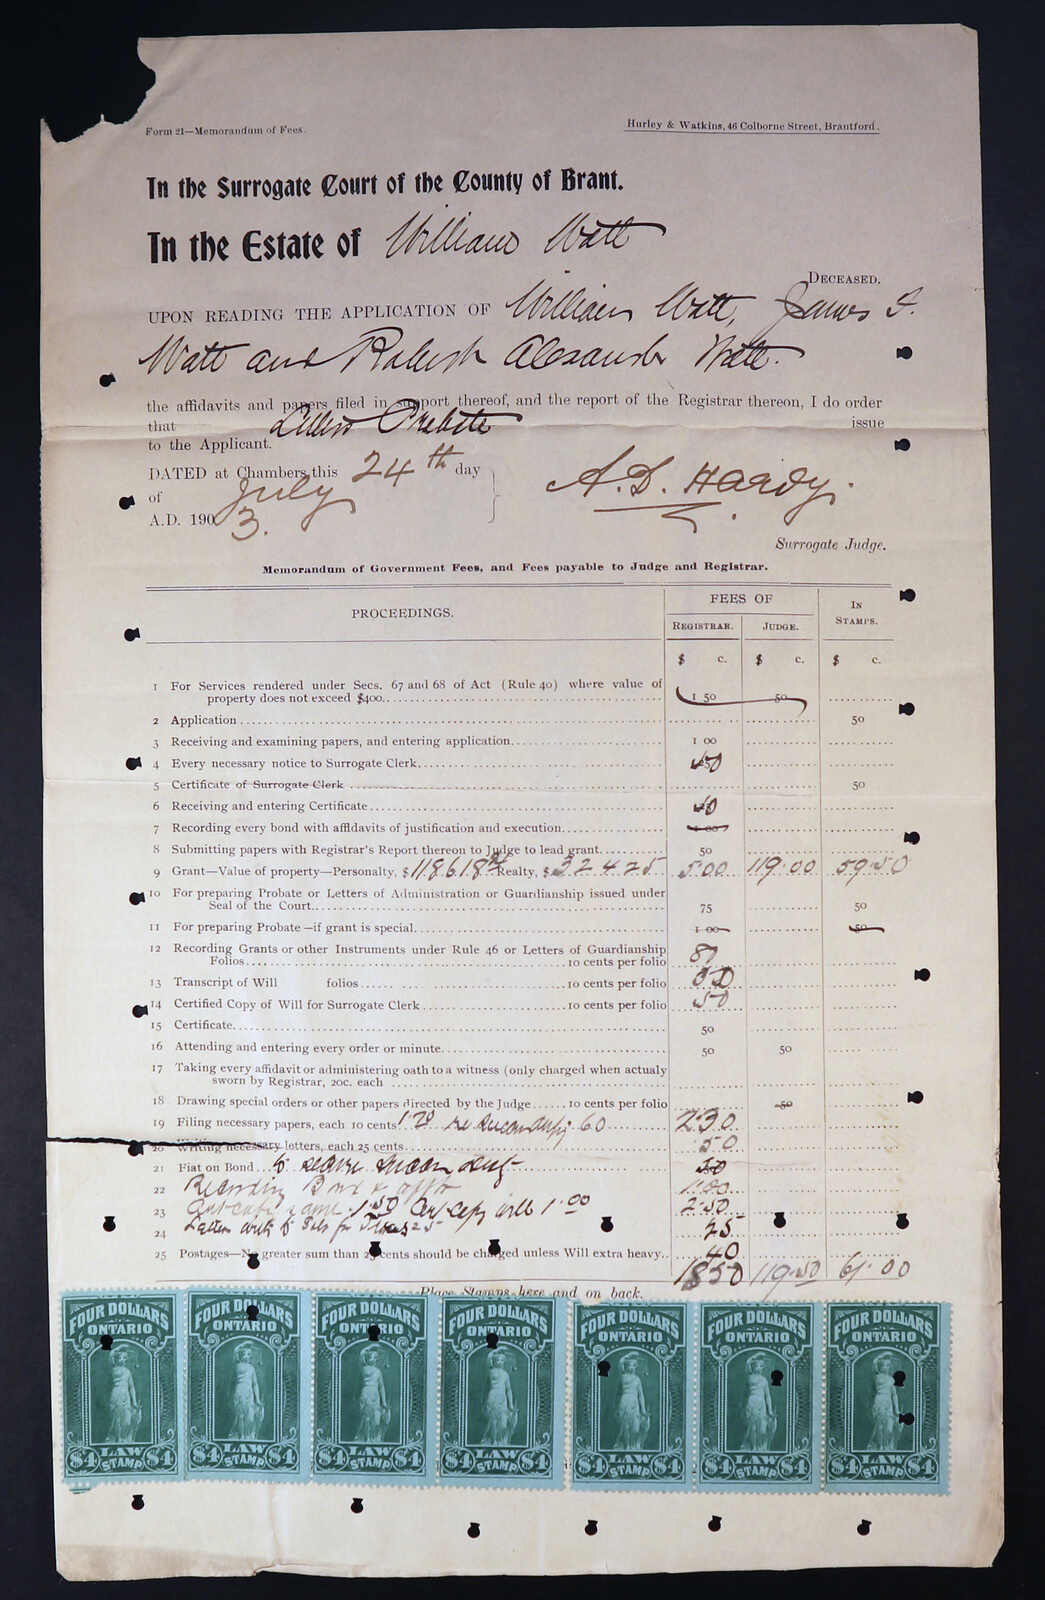 Form 21—Memorandum of Fees.
Hurley & Watkins, 46 Colborne Street, Brantford.
In the Surrogate Court of the County of Brant.
In the Estate of William Watt
DECEASED.
UPON READING THE APPLICATION OF William Watt, James F.
Watt and Robert Alexander Watt.
the affidavits and papers filed in support thereof, and the report of the Registrar thereon, I do order
that Letters Probate issue
to the Applicant.
DATED at Chambers, this 24th day
of July
A.D. 1903.
A. D. Hardy.
Surrogate Judge.
Memorandum of Government Fees, and Fees payable to Judge and Registrar.
PROCEEDINGS.
FEES OF
REGISTRAR. JUDGE.
IN STAMPS.
$ c. $ c. $ c.
1 For Services rendered under Secs. 67 and 68 of Act (Rule 40) where value of
property does not exceed $400. 1 50 50
2 Application 50
3 Receiving and examining papers, and entering application 1 00
4 Every necessary notice to Surrogate Clerk 50
5 Certificate of Surrogate Clerk 50
6 Receiving and entering Certificate
7 Recording every bond with affidavits of justification and execution 1 00
8 Submitting papers with Registrar's Report thereon to Judge to lead grant 50
9 Grant—Value of property—Personalty, $118618 Realty, $32425 5.00 119.00 59.50
10 For preparing Probate or Letters of Administration or Guardianship issued under
Seal of the Court. 75 50
11 For preparing Probate—if grant is special 1 00 50
12 Recording Grants or other Instruments under Rule 46 or Letters of Guardianship
Folios 10 cents per folio 80
13 Transcript of Will folios 10 cents per folio
14 Certified Copy of Will for Surrogate Clerk 10 cents per folio 50
15 Certificate 50
16 Attending and entering every order or minute 50 50
17 Taking every affidavit or administering oath to a witness (only charged when actualy
sworn by Registrar, 20c. each
18 Drawing special orders or other papers directed by the Judge 10 cents per folio 50
19 Filing necessary papers, each 10 cents 1.70 60 2.30
20 Writing necessary letters, each 25 cents 50
21 Fiat on Bond 50
22 Recording 1.00
23 1.50 will 1.00 2.50
24 25 25
25 Postages—No greater sum than 25 cents should be charged unless Will extra heavy. 40
18.50 119.50 61.00
Place Stamps here and on back.
FOUR DOLLARS FOUR DOLLARS FOUR DOLLARS FOUR DOLLARS FOUR DOLLARS FOUR DOLLARS FOUR DOLLARS
ONTARIO ONTARIO ONTARIO ONTARIO ONTARIO ONTARIO ONTARIO
LAW LAW LAW LAW LAW LAW LAW
$4 STAMP $4 $4 STAMP $4 $4 STAMP $4 $4 STAMP $4 $4 STAMP $4 $4 STAMP $4 $4 STAMP $4